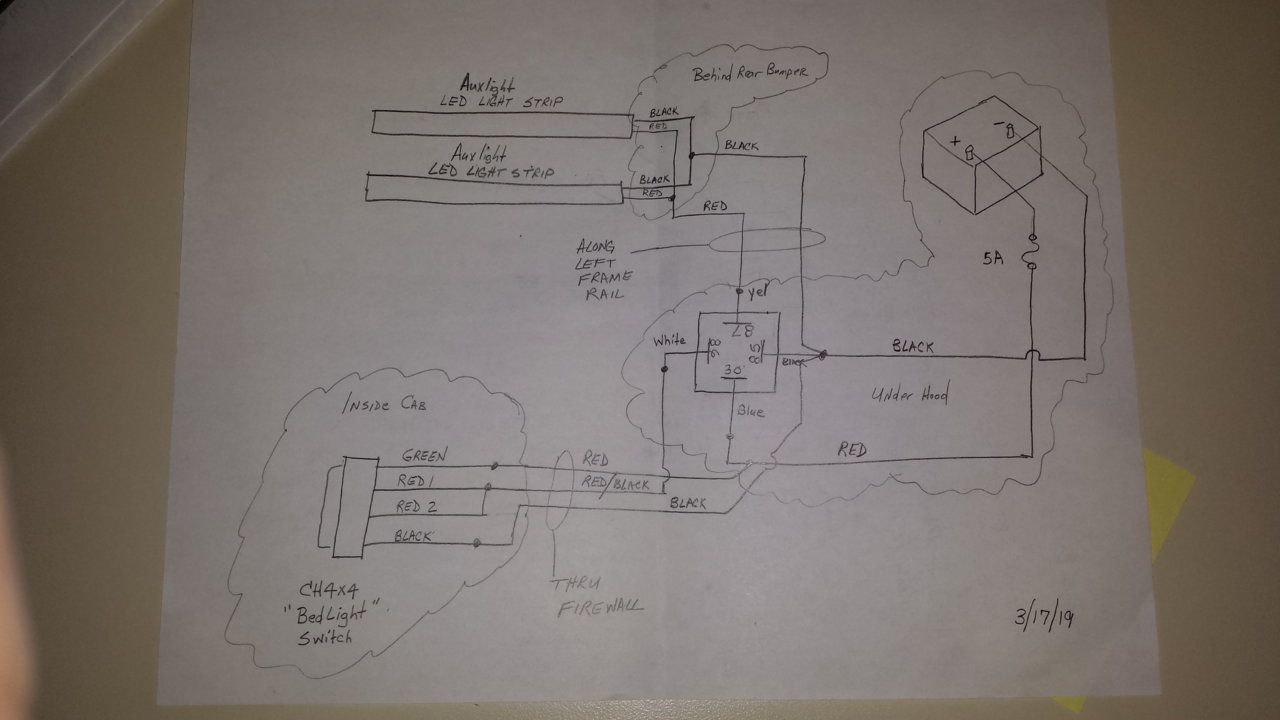 Behind Rear Bumper
Auxlight
LED LIGHT STRIP
BLACK
RED
BLACK
Auxlight
LED LIGHT STRIP
BLACK
RED
RED
+ -
ALONG
LEFT
FRAME
RAIL
5A
yel
87
White
86
85
Black
BLACK
30
Blue
Under Hood
INSIDE CAB
RED
GREEN
RED
RED 1
RED/BLACK
RED 2
BLACK
BLACK
THRU
FIREWALL
CH4x4
"Bed Light"
Switch
3/17/19